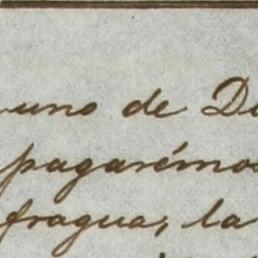 uno de
pagarémos
fragua, la